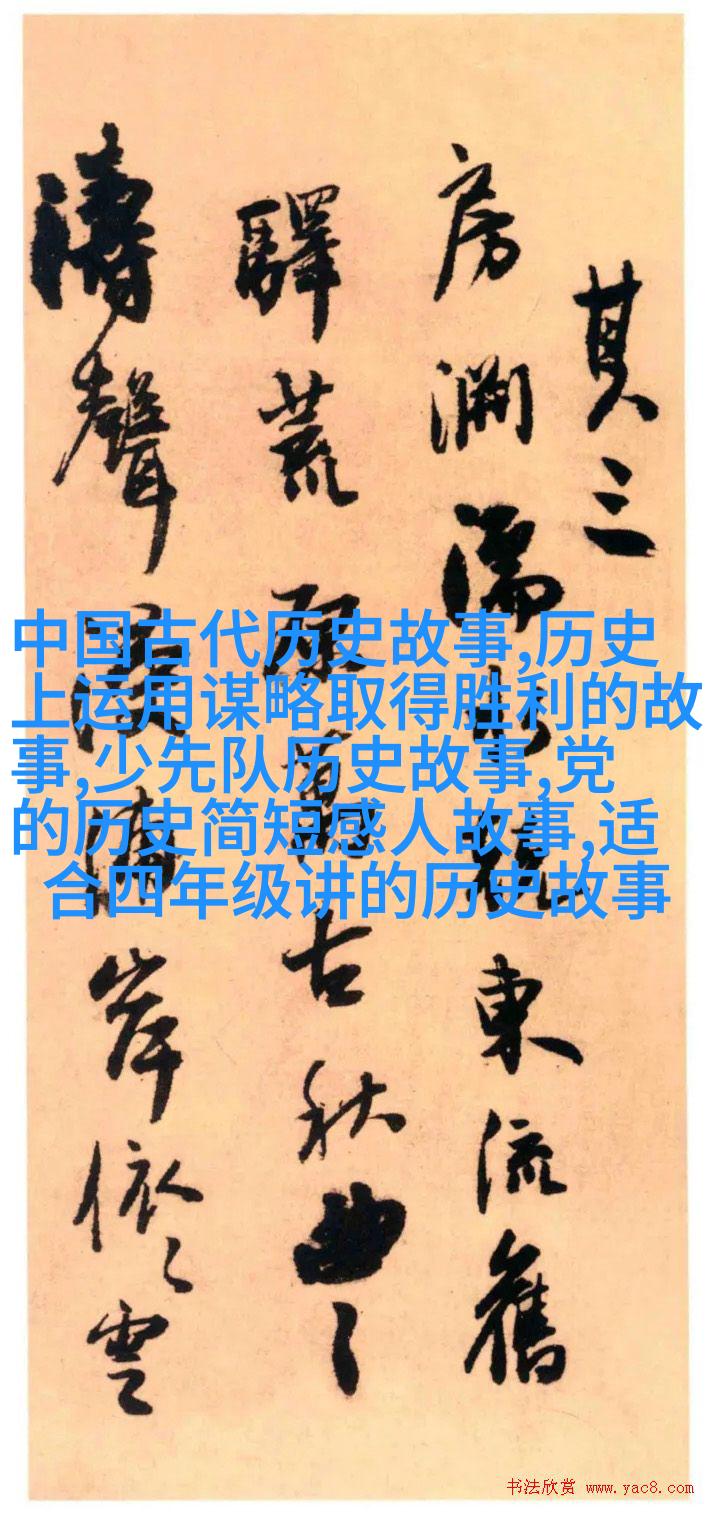 其三
房濡東流舊
驛荒原萬古秋曲〻
濤聲岸依〻雲
中国古代历史故事,历史
上运用谋略取得胜利的故
事,少先队历史故事,党
的历史简短感人故事,适
合四年级讲的历史故事
书法欣赏 www.yac8.com